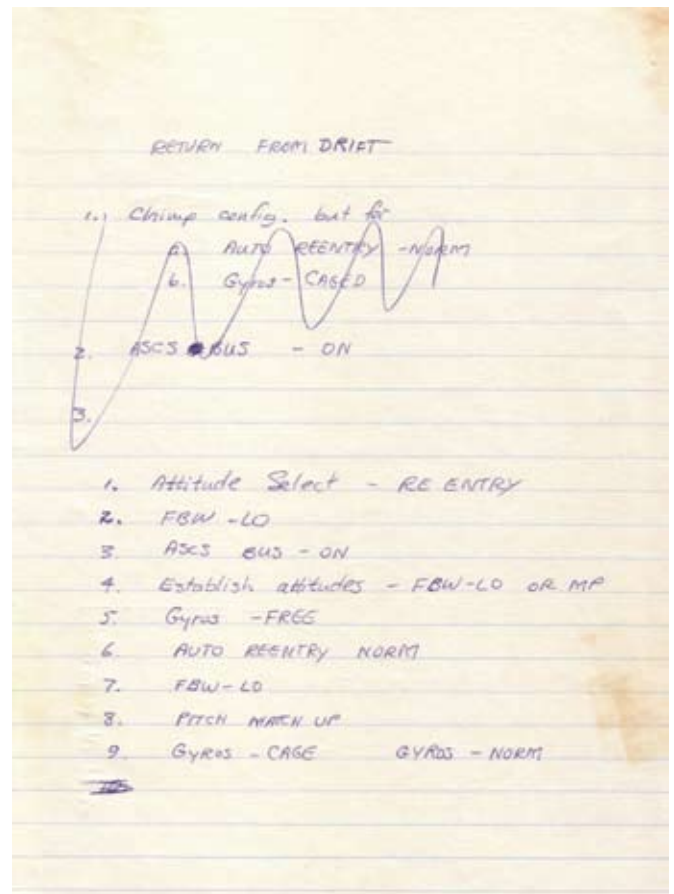 RETURN FROM DRIFT
1. Chimp config. but for
a. AUTO REENTRY - NORM
b. Gyros - CAGED
2. ASCS BUS - ON
3.
1. Attitude Select - RE ENTRY
2. FBW - LO
3. ASCS BUS - ON
4. Establish attitudes - FBW-LO OR MP
5. Gyros - FREE
6. AUTO REENTRY NORM
7. FBW-LO
8. PITCH MATCH UP
9. GYROS - CAGE GYROS - NORM